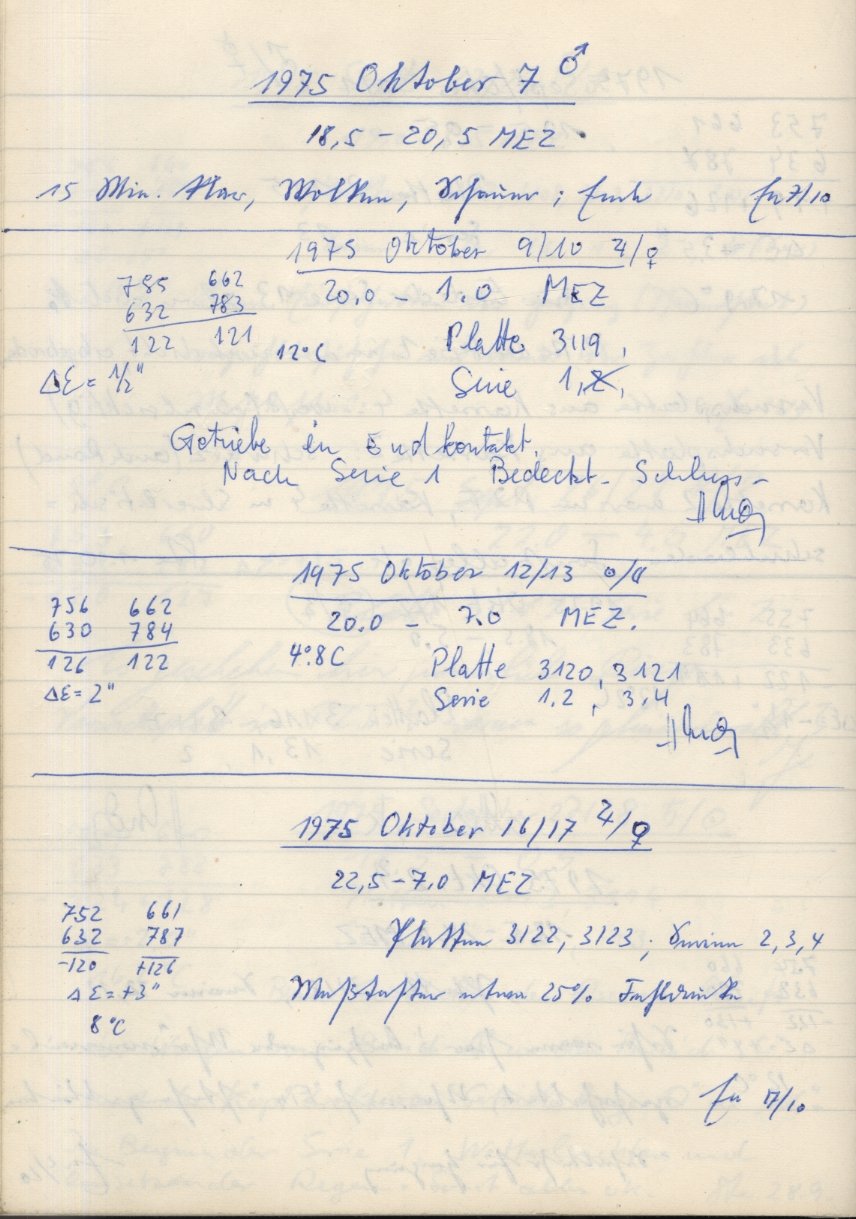 1975 Oktober 7 ♂
18,5 – 20,5 MEZ
15 Min. klar, Wolken, Schauer; Ende 7/10
1975 Oktober 9/10 ♃/♀
785 662
632 783
122 121
20.0 – 1.0 MEZ
12°C
Platte 3119,
ΔE = 1/2"
Serie 1,
Getriebe in Endkontakt.
Nach Serie 1 Bedeckt. Schluss –
1975 Oktober 12/13 ☉/☾
756 662
630 784
126 122
20.0 – 7.0 MEZ.
4°.8C
Platte 3120, 3121
ΔE = 2"
Serie 1.2, 3,4
1975 Oktober 16/17 ♃/♀
22,5 – 7.0 MEZ
752 661
632 787
-120 +126
Platten 3122, 3123; Serien 2,3,4
ΔE = +3"
Meßtaster etwa 25% Fehldrucke
8°C
17/10